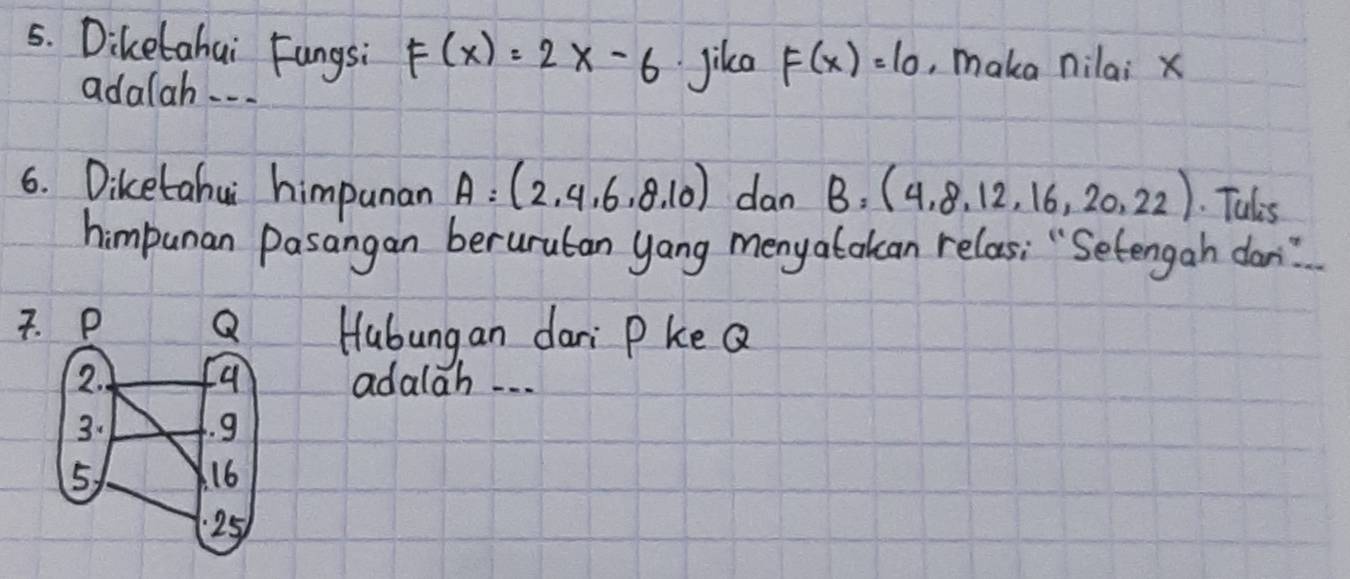 5. Diketahui Fungsi F(x) = 2x - 6. Jika F(x) = 10, maka nilai x
adalah ...
6. Diketahui himpunan A : (2,4,6,8,10) dan B : (4,8,12,16,20,22). Tulis
himpunan pasangan berurutan yang menyatakan relasi "Setengah dari" ...
7. P Q Hubungan dari P ke Q
2. 4 adalah ...
3. .9
5. .16
.25